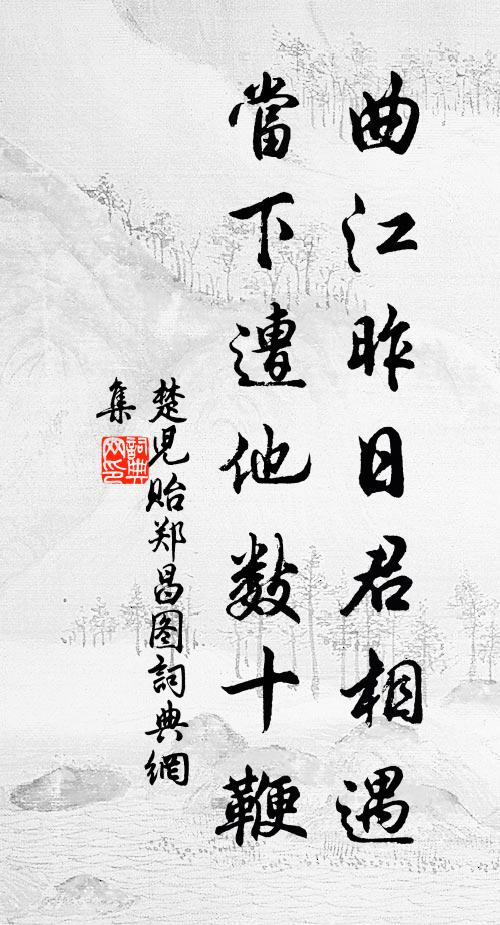 曲江昨日君相遇
當下遭他數十鞭
楚兒貽郑昌图詞典網
集
詞典
网印